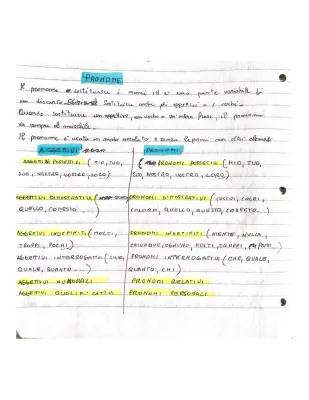 PRONOME
Il pronome sostituisce i nomi ed è una parte variabile di
un discorso. Sostituisce anche gli aggettivi e i verbi.
Quando sostituisce un aggettivo, un verbo o un'intera frase, il pronome
va sempre al maschile.
Il pronome è usato in modo assoluto e senza legami con altri elementi
AGGETTIVI PRONOMI
AGGETTIVI POSSESSIVI (MIO, TUO, PRONOMI POSSESSIVI (MIO, TUO,
SUO, NOSTRO, VOSTRO, LORO) SUO, NOSTRO, VOSTRO, LORO)
AGGETTIVI DIMOSTRATIVI PRONOMI DIMOSTRATIVI (COSTUI, COLEI,
QUELLO, CODESTO ...) COLORO, QUELLO, QUESTO, CODESTO...)
AGGETTIVI INDEFINITI (MOLTI, PRONOMI INDEFINITI (NIENTE, NULLA,
TROPPI, POCHI) CHIUNQUE, OGNUNO, MOLTI, TROPPI,
AGGETTIVI INTERROGATIVI (CHE, PRONOMI INTERROGATIVI (CHE, QUALE,
QUALE, QUANTO ...) QUANTO, CHI)
AGGETTIVI NUMERALI PRONOMI RELATIVI
AGGETTIVI QUALIFICATIVI PRONOMI PERSONALI